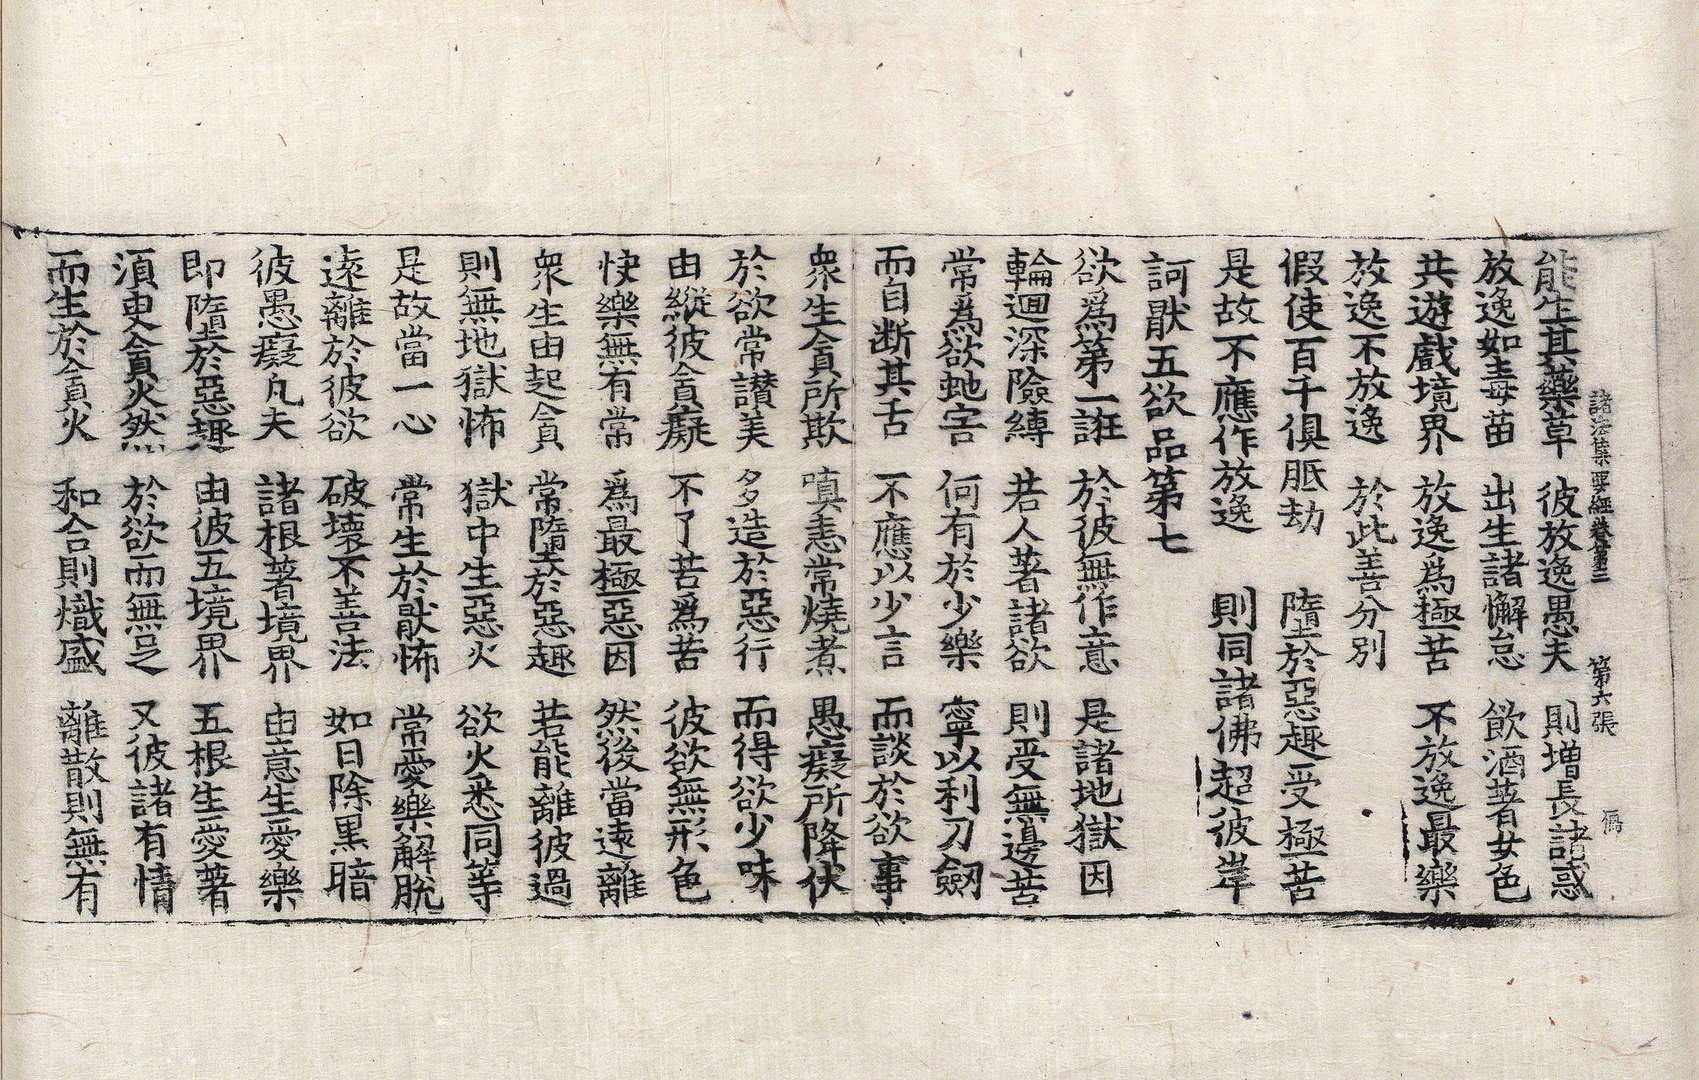 諸法集要經卷第三 第六張
能生其藥草 彼放逸愚夫 則增長諸惑
放逸如毒苗 出生諸懈怠 飲酒著女色
共遊戲境界 放逸為極苦 不放逸最樂
放逸不放逸 於此善分別
假使百千俱胝劫 墮於惡趣受極苦
是故不應作放逸 則同諸佛超彼岸
訶猒五欲品第七
欲爲第一誑 於彼無作意 是諸地獄因
輪迴深險縛 若人著諸欲 則受無邊苦
常爲欲虵害 何有於少樂 寧以利刀劒
而自断其舌 不應以少言 而談於欲事
衆生貪所欺 嗔恚常燒煮 愚癡所降伏
於欲常讃美 多造於惡行 而得欲少味
由縱彼貪癡 不了苦爲苦 彼欲無形色
快樂無有常 爲最極惡因 然後當遠離
衆生由起貪 常墮於惡趣 若能離彼過
則無地獄怖 獄中生惡火 欲火悉同等
是故當一心 常生於猒怖 常愛樂解脫
遠離於彼欲 破壞不善法 如日除黒暗
彼愚癡凡夫 諸根著境界 由意生愛樂
即墮於惡趣 由彼五境界 五根生愛著
湏臾貪火然 於欲而無足 又彼諸有情
而生於貪火 和合則熾盛 離散則無有